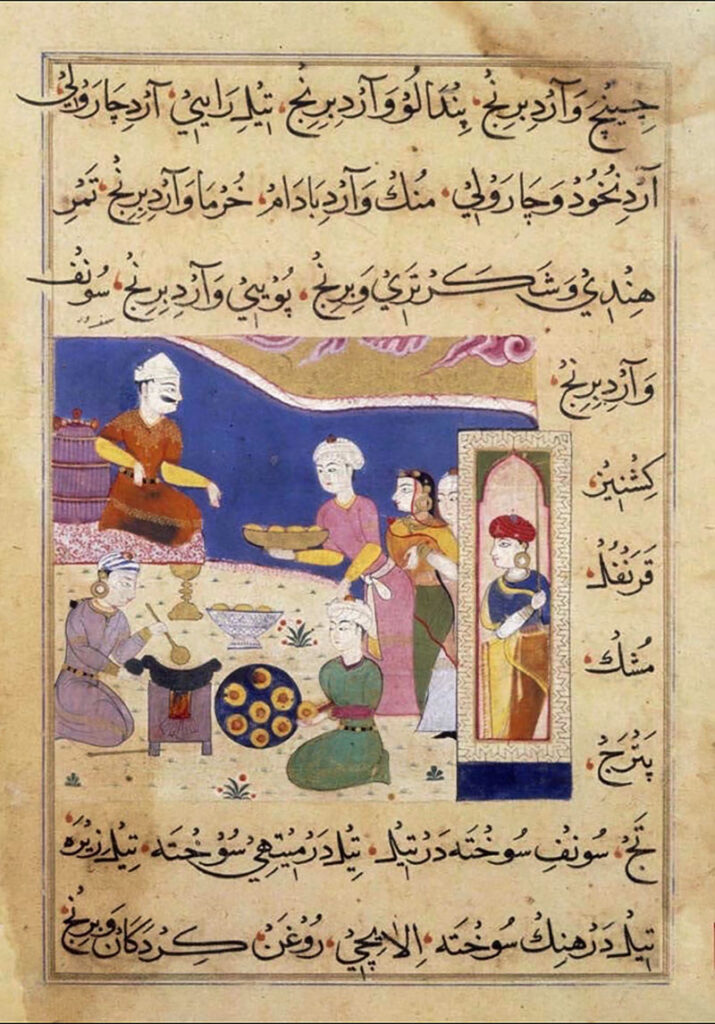 چینچ وآرد برنج، پندالو وآرد برنج، تیل رایی، آرد چارولی
آرد نخود و چارولی، منک وآرد بادام، خرما وآرد برنج، تمر
هندی و شکر تری و برنج، پویی وآرد برنج، سونف
وآرد برنج
کشنیز
قرنفل
مشک
پترج
تج، سونف سوخته در تیل، تیل در میتهی سوخته، تیل زیره
تیل در هنک سوخته، الایچی، روغن کردکان و برنج